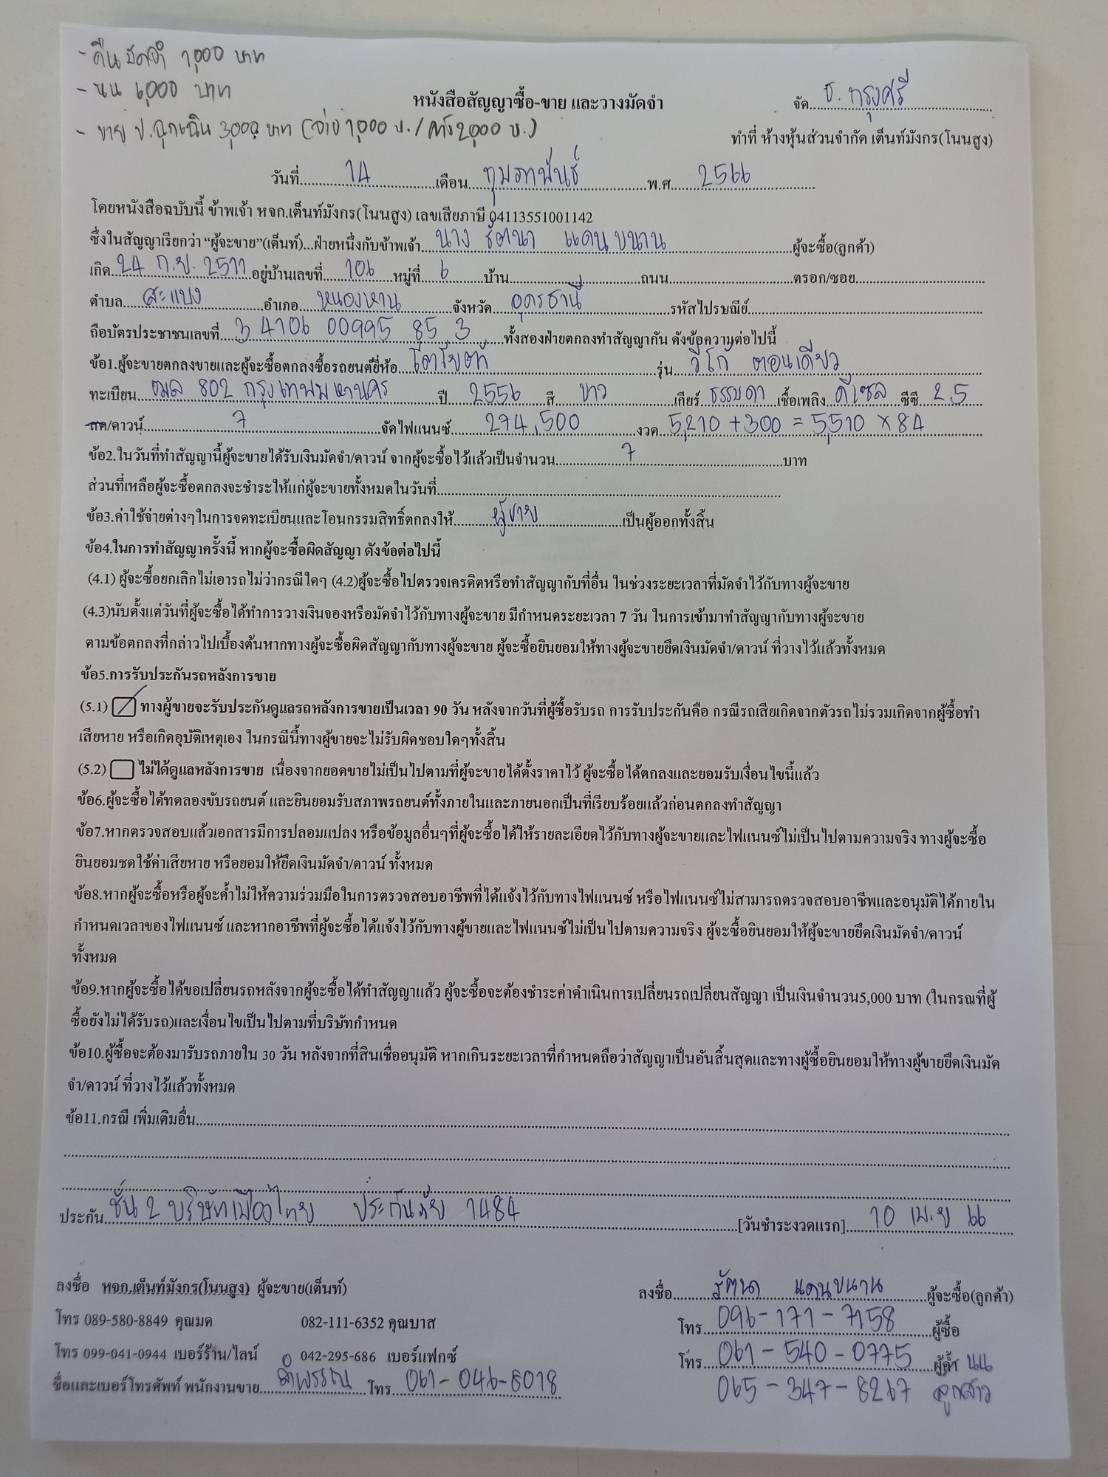 - คืนมัดจำ 1,000 บาท
- นน 6,000 บาท
- ขาย ป.ฉุกเฉิน 3,000 บาท (จ่าย 1,000 บ./ค้าง 2,000 บ.)
จัด ธ. กรุงศรี
หนังสือสัญญาซื้อ-ขาย และวางมัดจำ
ทำที่ ห้างหุ้นส่วนจำกัด เต็นท์มังกร(โนนสูง)
วันที่ 14 เดือน กุมภาพันธ์ พ.ศ. 2566
โดยหนังสือฉบับนี้ ข้าพเจ้า หจก.เต็นท์มังกร(โนนสูง) เลขเสียภาษี 04113551001142
ซึ่งในสัญญาเรียกว่า “ผู้จะขาย”(เต็นท์)...ฝ่ายหนึ่งกับข้าพเจ้า นาง รัตนา แดนขนาน ผู้จะซื้อ(ลูกค้า)
เกิด 24 ก.ย. 2511 อยู่บ้านเลขที่ 106 หมู่ที่ 6 บ้าน ถนน ตรอก/ซอย
ตำบล สะแบง อำเภอ หนองหาน จังหวัด อุดรธานี รหัสไปรษณีย์
ถือบัตรประชาชนเลขที่ 3 4106 00995 85 3 ทั้งสองฝ่ายตกลงทำสัญญากัน ดังข้อความต่อไปนี้
ข้อ1.ผู้จะขายตกลงขายและผู้จะซื้อตกลงซื้อรถยนต์ยี่ห้อ โตโยต้า รุ่น วีโก้ ตอนเดียว
ทะเบียน ฒล 802 กรุงเทพมหานคร ปี 2556 สี ขาว เกียร์ ธรรมดา เชื้อเพลิง ดีเซล ซีซี 2.5
สด/ดาวน์ 7 จัดไฟแนนซ์ 274,500 งวด 5,210 + 300 = 5,510 x 84
ข้อ2.ในวันที่ทำสัญญานี้ผู้จะขายได้รับเงินมัดจำ/ดาวน์ จากผู้จะซื้อไว้แล้วเป็นจำนวน 7 บาท
ส่วนที่เหลือผู้จะซื้อตกลงจะชำระให้แก่ผู้จะขายทั้งหมดในวันที่
ข้อ3.ค่าใช้จ่ายต่างๆในการจดทะเบียนและโอนกรรมสิทธิ์ตกลงให้ ผู้ขาย เป็นผู้ออกทั้งสิ้น
ข้อ4.ในการทำสัญญาครั้งนี้ หากผู้จะซื้อผิดสัญญา ดังข้อต่อไปนี้
(4.1) ผู้จะซื้อยกเลิกไม่เอารถไม่ว่ากรณีใดๆ (4.2)ผู้จะซื้อไปตรวจเครดิตหรือทำสัญญากับที่อื่น ในช่วงระยะเวลาที่มัดจำไว้กับทางผู้จะขาย
(4.3)นับตั้งแต่วันที่ผู้จะซื้อได้ทำการวางเงินจองหรือมัดจำไว้กับทางผู้จะขาย มีกำหนดระยะเวลา 7 วัน ในการเข้ามาทำสัญญากับทางผู้จะขาย
ตามข้อตกลงที่กล่าวไปเบื้องต้นหากทางผู้จะซื้อผิดสัญญากับทางผู้จะขาย ผู้จะซื้อยินยอมให้ทางผู้จะขายยึดเงินมัดจำ/ดาวน์ ที่วางไว้แล้วทั้งหมด
ข้อ5.การรับประกันรถหลังการขาย
(5.1) ทางผู้ขายจะรับประกันดูแลรถหลังการขายเป็นเวลา 90 วัน หลังจากวันที่ผู้ซื้อรับรถ การรับประกันคือ กรณีรถเสียเกิดจากตัวรถ ไม่รวมเกิดจากผู้ซื้อทำ
เสียหาย หรือเกิดอุบัติเหตุเอง ในกรณีนี้ทางผู้ขายจะไม่รับผิดชอบใดๆทั้งสิ้น
(5.2) ไม่ได้ดูแลหลังการขาย เนื่องจากยอดขายไม่เป็นไปตามที่ผู้จะขายได้ตั้งราคาไว้ ผู้จะซื้อได้ตกลงและยอมรับเงื่อนไขนี้แล้ว
ข้อ6.ผู้จะซื้อได้ทดลองขับรถยนต์ และยินยอมรับสภาพรถยนต์ทั้งภายในและภายนอกเป็นที่เรียบร้อยแล้วก่อนตกลงทำสัญญา
ข้อ7.หากตรวจสอบแล้วเอกสารมีการปลอมแปลง หรือข้อมูลอื่นๆที่ผู้จะซื้อได้ให้รายละเอียดไว้กับทางผู้จะขายและไฟแนนซ์ไม่เป็นไปตามความจริง ทางผู้จะซื้อ
ยินยอมชดใช้ค่าเสียหาย หรือยอมให้ยึดเงินมัดจำ/ดาวน์ ทั้งหมด
ข้อ8.หากผู้จะซื้อหรือผู้จะค้ำไม่ให้ความร่วมมือในการตรวจสอบอาชีพที่ได้แจ้งไว้กับทางไฟแนนซ์ หรือไฟแนนซ์ไม่สามารถตรวจสอบอาชีพและอนุมัติได้ภายใน
กำหนดเวลาของไฟแนนซ์ และหากอาชีพที่ผู้จะซื้อได้แจ้งไว้กับทางผู้ขายและไฟแนนซ์ไม่เป็นไปตามความจริง ผู้จะซื้อยินยอมให้ผู้จะขายยึดเงินมัดจำ/ดาวน์
ทั้งหมด
ข้อ9.หากผู้จะซื้อได้ขอเปลี่ยนรถหลังจากผู้จะซื้อได้ทำสัญญาแล้ว ผู้จะซื้อจะต้องชำระค่าดำเนินการเปลี่ยนรถเปลี่ยนสัญญา เป็นเงินจำนวน5,000 บาท (ในกรณีที่ผู้
ซื้อยังไม่ได้รับรถ)และเงื่อนไขเป็นไปตามที่บริษัทกำหนด
ข้อ10.ผู้ซื้อจะต้องมารับรถภายใน 30 วัน หลังจากที่สินเชื่ออนุมัติ หากเกินระยะเวลาที่กำหนดถือว่าสัญญาเป็นอันสิ้นสุดและทางผู้ซื้อยินยอมให้ทางผู้ขายยึดเงินมัด
จำ/ดาวน์ ที่วางไว้แล้วทั้งหมด
ข้อ11.กรณี เพิ่มเติมอื่น
ประกัน ชั้น 2 บริษัทเมืองไทย ประกันภัย 1484 [วันชำระงวดแรก] 10 เม.ย 66
ลงชื่อ หจก.เต็นท์มังกร(โนนสูง) ผู้จะขาย(เต็นท์)
ลงชื่อ รัตนา แดนขนาน ผู้จะซื้อ(ลูกค้า)
โทร 089-580-8849 คุณมด 082-111-6352 คุณบาส
โทร 096-171-7158 ผู้ซื้อ
โทร 099-041-0944 เบอร์ร้าน/ไลน์ 042-295-686 เบอร์แฟกซ์
โทร 061-540-0775 ผู้ค้ำ นน
ชื่อและเบอร์โทรศัพท์ พนักงานขาย ลำพรรณ โทร 061-046-6018
065-347-8267 ลูกสาว